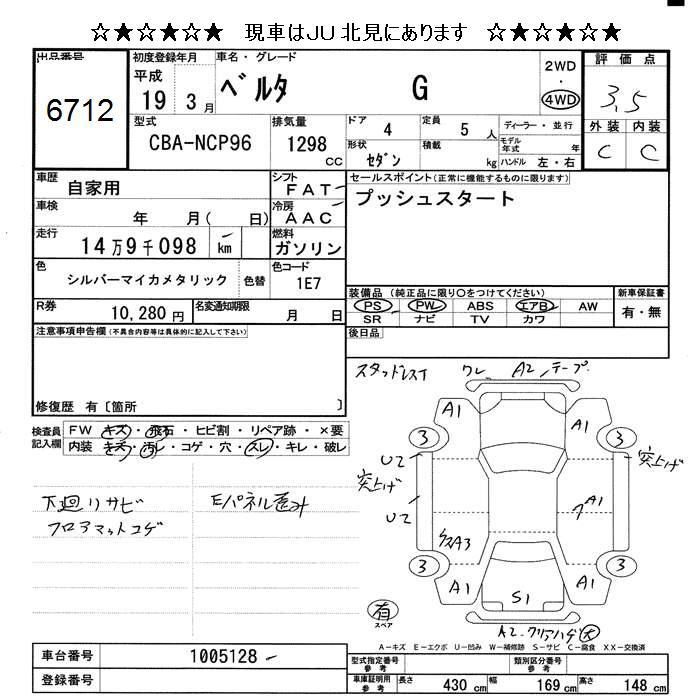 ☆★☆★☆★ 現車はJU北見にあります ☆★☆★☆★
出品番号 6712
初度登録年月 平成 19 3月
車名・グレード ベルタ G
2WD ・ 4WD
評価点 3.5
外装 C 内装 C
型式 CBA-NCP96
排気量 1298 CC
ドア 4 定員 5 人
形状 セダン 積載 kg
ディーラー・並行
モデル年式 年
ハンドル 左・右
車歴 自家用
シフト FAT
車検 年 月( 日)
冷房 AAC
走行 14万9千098 km
燃料 ガソリン
色 シルバーマイカメタリック 色替
色コード 1E7
R券 10,280円
名変通知期限 月 日
セールスポイント(正常に機能するものに限ります)
プッシュスタート
装備品 (純正品に限り○をつけてください)
PS PW ABS エアB AW
SR ナビ TV カワ
新車保証書 有・無
後日品
注意事項申告欄(不具合内容等は具体的に記入して下さい)
修復歴 有〔箇所 〕
検査員記入欄
FW キズ・飛石・ヒビ割・リペア跡・×要
内装 キズ・汚レ・コゲ・穴・スレ・キレ・破レ
下廻りサビ
フロアマットコゲ
Eパネル歪み
スタッドレス
ワレ A2 テープ
A1 A1
3 3
U2 突上げ
突上げ
U2 A1
A3
3 3
A1 A1
S1
有 スペア
A2 クリアハゲ大
A-キズ E-エクボ U-凹み W-補修跡 S-サビ C-腐食 XX-交換済
車台番号 1005128
登録番号
型式指定番号 参考
類別区分番号 参考
車庫証明用 参考 長さ 430 cm 幅 169 cm 高さ 148 cm